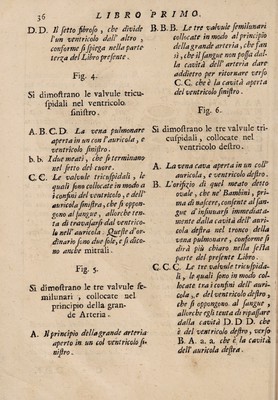 36 LIBRO PRIMO.
D. D. Il setto fibroso, che divide
l'un ventricolo dall' altro,
conforme si spiega nella parte
terza del Libro presente.
Fig. 4.
Si dimostrano le valvule tricu-
spidali nel ventricolo
sinistro.
A. B. C. D. La vena pulmonare
aperta in un con l'auricola, e
ventricolo sinistro.
b. b. I due meati, che si terminano
nel setto del cuore.
C. C. Le valvule tricuspidali, le
quali sono collocate in modo a
i confini del ventricolo, e dell'
auricola sinistra, che si oppon-
gono al sangue, allorche ten-
ta di travasarsi dal ventrico-
lo nell' auricola. Queste d'or-
dinario sono due sole, e si dico-
no anche mitrali.
Fig. 5.
Si dimostrano le tre valvule se-
milunari, collocate nel
principio della gran-
de Arteria.
A. Il principio della grande arteria
aperto in un col ventricolo si-
nistro.
B. B. B. Le tre valvule semilunari
collocate in modo al principio
della grande arteria, che fan
sì, che il sangue non possa dal-
la cavità dell' arteria dare
addietro per ritornare verso
C. C. che è la cavità aperta
del ventricolo sinistro.
Fig. 6.
Si dimostrano le tre valvule tri-
cuspidali, collocate nel
ventricolo destro.
A. La vena cava aperta in un coll'
auricola, e ventricolo destro.
B. L'orifizio di quel meato detto
ovale, che ne' Bambini, pri-
ma di nascere, consente al san-
gue d'insinuarsi immediata-
mente dalla cavità dell' auri-
cola destra nel tronco della
vena pulmonare, conforme si
dirà più chiaro nella sesta
parte del presente Libro.
C. C. C. Le tre valvule tricuspida-
li, le quali sono in modo col-
locate tra i confini dell' auri-
cola, e del ventricolo destro,
che si oppongono al sangue,
allorche egli tenta di ripassare
dalla cavità D. D. D. che
è del ventricolo destro, verso
B. A. a. a. che è la cavità
dell' auricola destra.